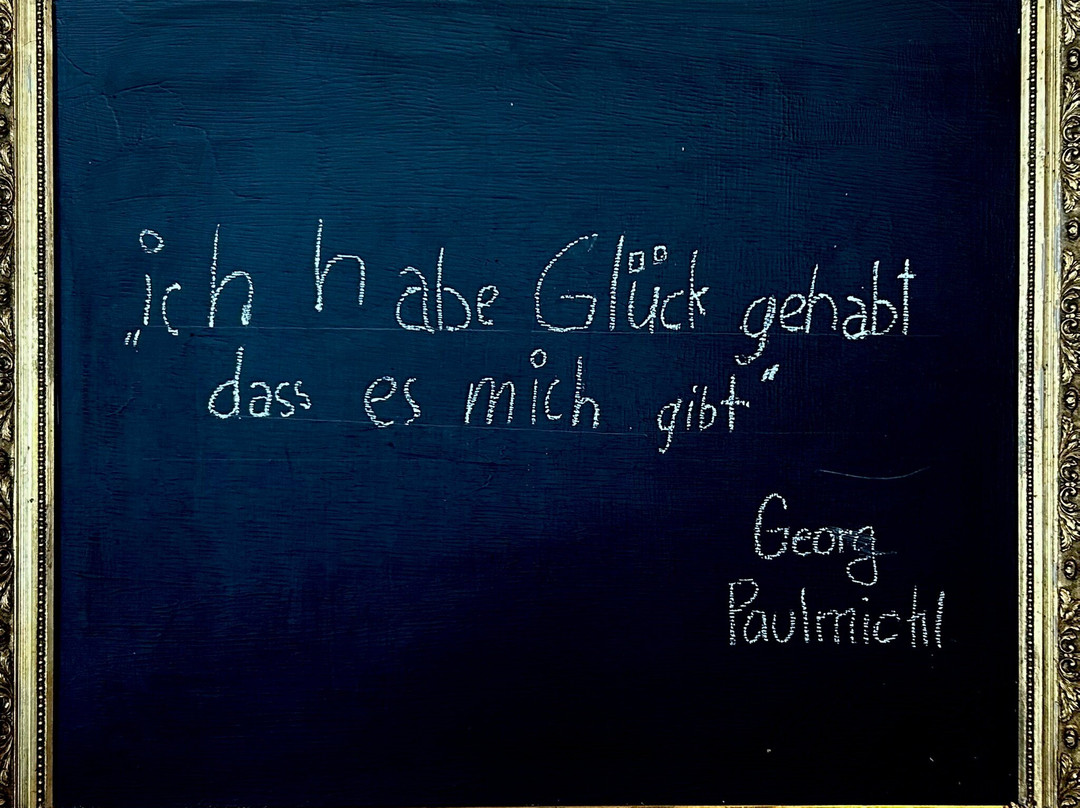 „ich habe Glück gehabt
dass es mich gibt“
Georg
Paulmichl